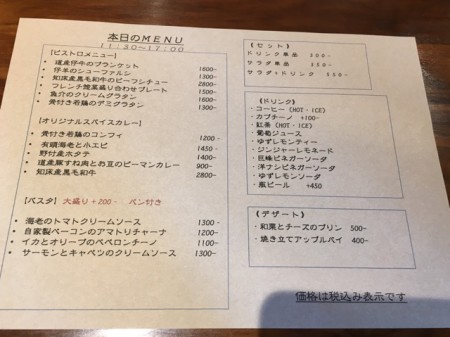 本日のMENU
11:30~17:00
[ビストロメニュー]
・道産仔牛のブランケット 1600-
・仔羊のシューファルシ 1300-
・知床産黒毛和牛のビーフシチュー 2800-
・フレンチ惣菜盛り合わせプレート 1500-
・魚介のクリームグラタン 1600-
・骨付き若鶏のデミグラタン 1300-
[オリジナルスパイスカレー]
・骨付き若鶏のコンフィ 1200-
・有頭海老と小エビ 1450-
・野付産ホタテ 1400-
・道産豚すね肉とお豆のピーマンカレー 900-
・知床産黒毛和牛 2800-
[パスタ] 大盛り+200- パン付き
・海老のトマトクリームソース 1300-
・自家製ベーコンのアマトリチャーナ 1200-
・イカとオリーブのペペロンチーノ 1100-
・サーモンとキャベツのクリームソース 1300-
(セット)
ドリンク単品 200-
サラダ単品 350-
サラダ+ドリンク 550-
(ドリンク)
・コーヒー(HOT・ICE)
・カプチーノ +100-
・紅茶(HOT・ICE)
・葡萄ジュース
・ゆずレモンティー
・ジンジャーレモネード
・巨峰ビネガーソーダ
・洋ナシビネガーソーダ
・ゆずレモンソーダ
・瓶ビール +450
(デザート)
・和栗とチーズのプリン 500-
・焼き立てアップルパイ 400-
価格は税込み表示です